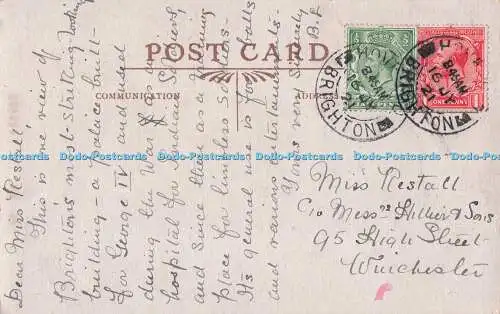 POST CARD
COMMUNICATION
ADDRESS
Dear Miss Restall
This is one view of
Brightons most striking looking
building – a palace built
for George IV and used
during the War as a
hospital for Indian Soldiers
and since then as a training
place for limbless Soldiers.
Its general use is for Balls
and various entertainments
Yours very sincerely
B.L
HOVE
BRIGHTON
HOVE
BRIGHTON
ONE PENNY
Miss Restall
C/o Messrs Hillier & Sons
95 High Street
Winchester
www.postcards
Postcards